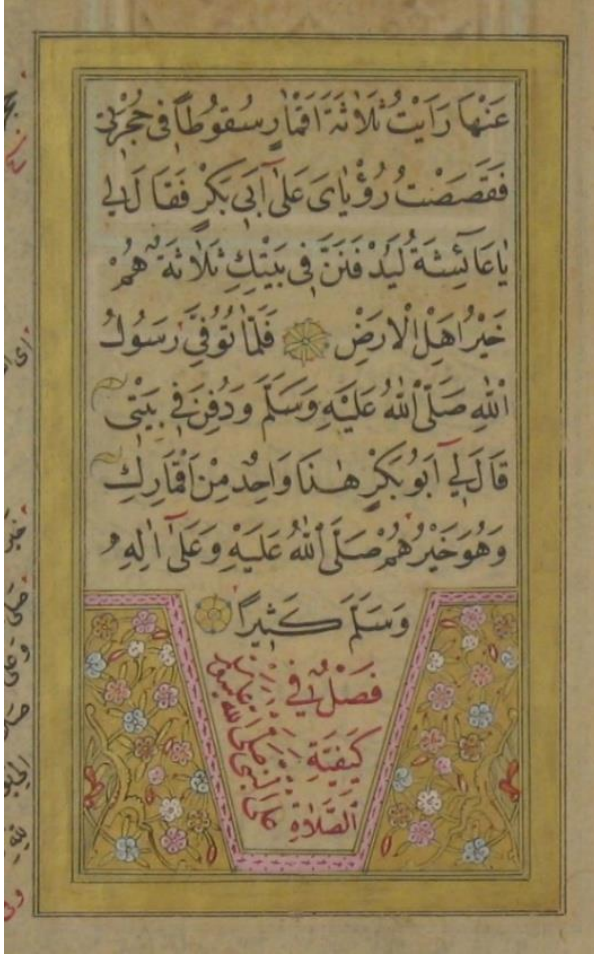 عَنْهَا رَاَيْتُ ثَلَاثَةَ اَقْمَارٍ سُقُوطًا فِى حُجْرَتِى
فَقَصَصْتُ رُؤْيَاىَ عَلٰى اَبِى بَكْرٍ فَقَالَ لِى
يَا عَائِشَةُ لَيُدْفَنَنَّ فِى بَيْتِكِ ثَلَاثَةٌ هُمْ
خَيْرُ اَهْلِ الْاَرْضِ فَلَمَّا تُوُفِّىَ رَسُولُ
اللّٰهِ صَلَّى اللّٰهُ عَلَيْهِ وَسَلَّمَ وَدُفِنَ فِى بَيْتِى
قَالَ لِى اَبُو بَكْرٍ هٰذَا وَاحِدٌ مِنْ اَقْمَارِكِ
وَهُوَ خَيْرُهُمْ صَلَّى اللّٰهُ عَلَيْهِ وَعَلٰى اٰلِهِ
وَسَلَّمَ كَثِيرًا
فَصْلٌ فِى
كَيْفِيَّةِ
الصَّلَاةِ
على النبى صلى الله